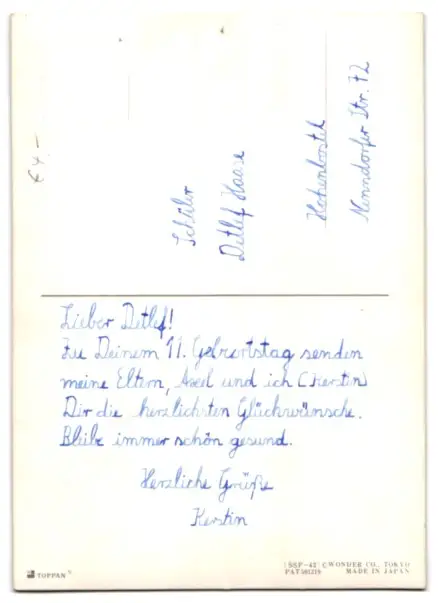 € 4,-
Schüler
Detlef Haase
Hohenbostel
Nenndorfer Str. 72
Lieber Detlef!
Zu Deinem 11. Geburtstag senden
meine Eltern, Axel und ich (Kerstin)
Dir die herzlichsten Glückwünsche.
Bleibe immer schön gesund.
Herzliche Grüße
Kerstin
TOPPAN
SSP-42 © WONDER CO., TOKYO
MADE IN JAPAN